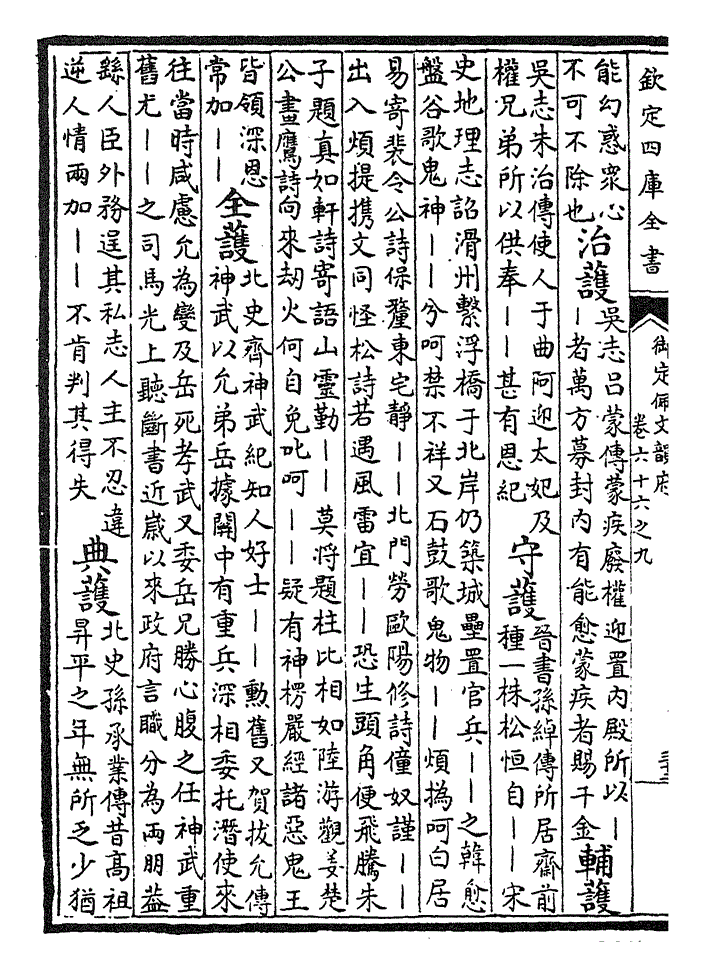 欽定四庫全書
御定佩文韻府
卷六十六之九
能幻惑衆心
不可不除也
治護
吳志呂蒙傳蒙疾廢權迎置內殿所以—
—者萬方募封內有能愈蒙疾者賜千金
輔護
吳志朱治傳使人于曲阿迎太妃及
權兄弟所以供奉——甚有恩紀
守護
晉書孫綽傳所居齋前
種一株松恒自——宋
史地理志詔滑州繫浮橋于北岸仍築城壘置官兵——之韓愈
盤谷歌鬼神——兮呵禁不祥又石鼓歌鬼物——煩撝呵白居
易寄裴令公詩保釐東宅靜——北門勞歐陽修詩僮奴謹——
出入煩提携文同怪松詩若遇風雷宜——恐生頭角便飛騰朱
子題真如軒詩寄語山靈勤——莫將題柱比相如陸游觀姜楚
公畫鷹詩向來劫火何自免叱呵——疑有神楞嚴經諸惡鬼王
皆領深恩
常加——
全護
北史齊神武紀知人好士——勲舊又賀拔允傳
神武以允弟岳據關中有重兵深相委托潛使來
往當時咸慮允為變及岳死孝武又委岳兄勝心腹之任神武重
舊尤——之司馬光上聽斷書近歲以來政府言職分為兩朋葢
繇人臣外務逞其私志人主不忍違
逆人情兩加——不肯判其得失
典護
北史孫承業傳昔高祖
昇平之年無所乏少猶